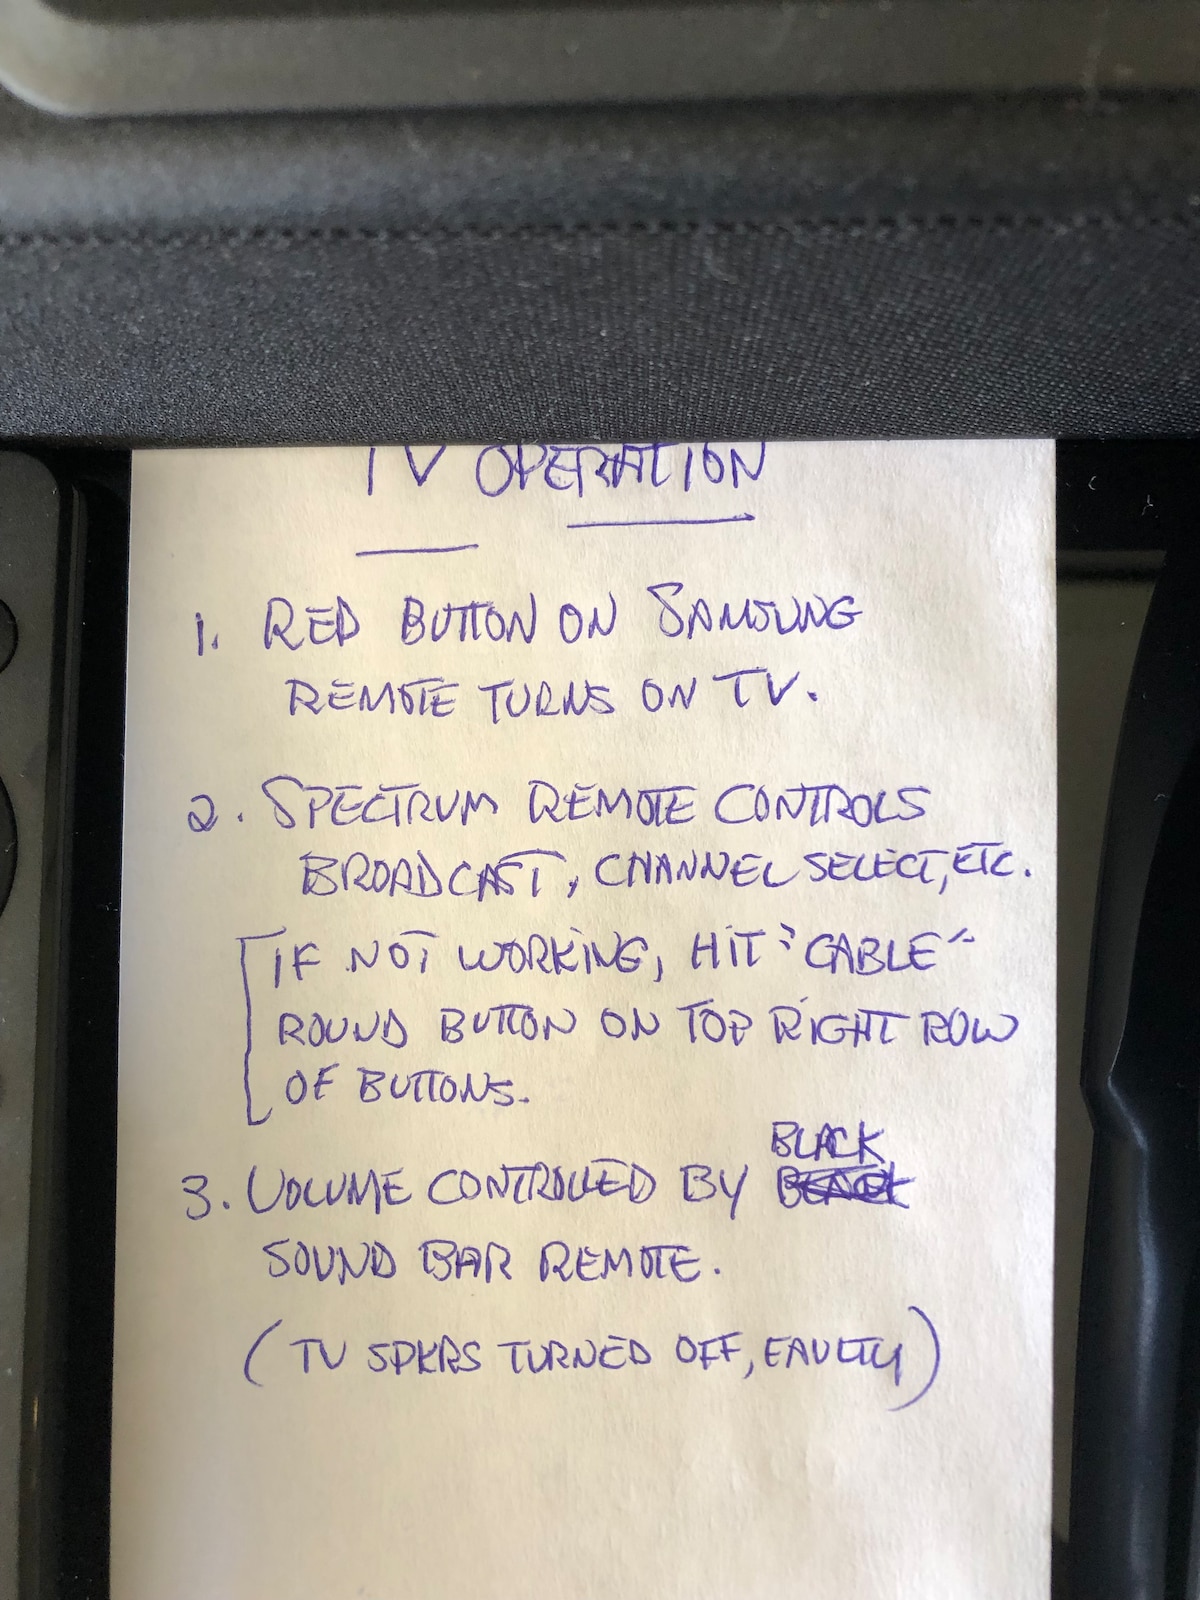 TV OPERATION
1. RED BUTTON ON SAMSUNG
REMOTE TURNS ON TV.
2. SPECTRUM REMOTE CONTROLS
BROADCAST, CHANNEL SELECT, ETC.
IF NOT WORKING, HIT "CABLE"
ROUND BUTTON ON TOP RIGHT ROW
OF BUTTONS.
BLACK
3. VOLUME CONTROLLED BY
SOUND BAR REMOTE.
(TV SPKRS TURNED OFF, FAULTY)